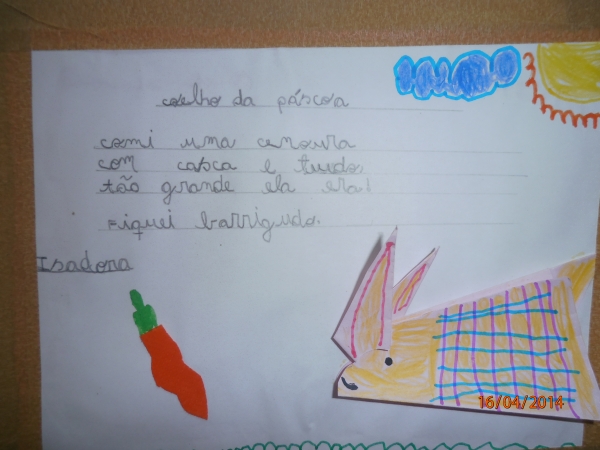 coelho da páscoa
comi uma cenoura
com casca e tudo,
tão grande ela era!
Fiquei barrigudo.
Isadora
16/04/2014